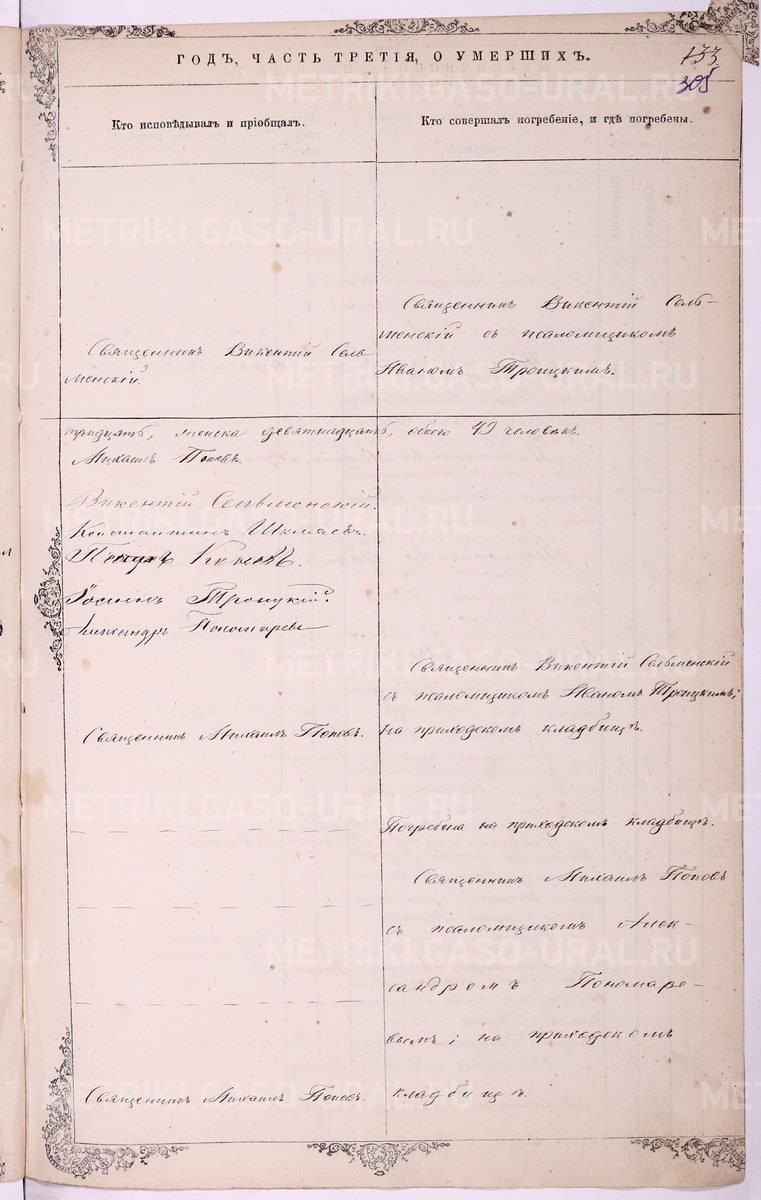 ГОДЪ, ЧАСТЬ ТРЕТІЯ, О УМЕРШИХЪ.
133
305
Кто исповѣдывалъ и пріобщалъ.
Кто совершалъ погребеніе, и гдѣ погребены.
Священникъ Викентій Сель-
менскій.
Священникъ Викентій Сель-
менскій съ псаломщикомъ
Иваномъ Троицкимъ.
тридцать, женска девятнадцать, обоего 49 человѣкъ.
Михаилъ Поповъ.
Викентій Сельменскій.
Константинъ
Троицкій.
Александръ Пономаревъ
Священникъ Викентій Сельменскій
съ псаломщикомъ Иваномъ Троицкимъ;
на приходскомъ кладбищѣ.
Священникъ Михаилъ Поповъ.
Погребена на приходскомъ кладбищѣ.
Священникъ Михаилъ Поповъ
съ псаломщикомъ Алек-
сандромъ Пономаре-
вымъ; на приходскомъ
кладбищѣ.
Священникъ Михаилъ Поповъ.
METRIKI.GASO-URAL.RU